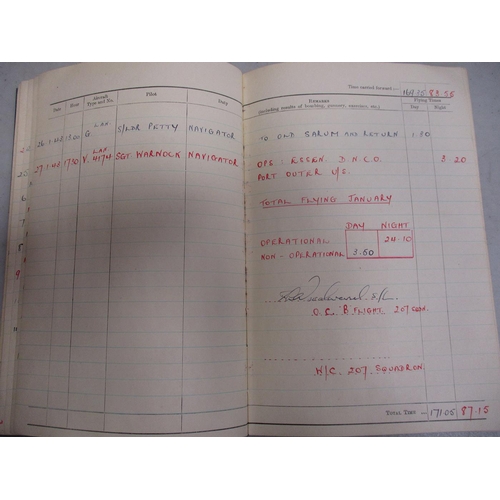 Date Hour Aircraft Type and No. Pilot Duty
LAN
26.1.43 1500 G. S/LDR PETTY NAVIGATOR
LAN
27.1.43 1730 V. 4174 SGT. WARNOCK NAVIGATOR
Time carried forward :—
83.55
REMARKS
(including results of bombing, gunnery, exercises, etc.)
Flying Times
Day Night
TO OLD SARUM AND RETURN 1.50
OPS : ESSEN. D.N.C.O. 3.20
PORT OUTER U/S.
TOTAL FLYING JANUARY
DAY NIGHT
OPERATIONAL 24.10
NON-OPERATIONAL 3.50
O.C. 'B' FLIGHT 207 SQDN.
W/C. 207. SQUADRON.
TOTAL TIME 171.05 87.15